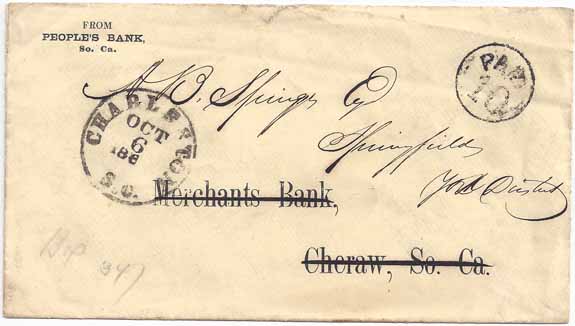 FROM
PEOPLE'S BANK,
So. Ca.
PAID
10
CHARLESTON
OCT
6
186
S.C.
A. B. Springs Esq
Springfield
York District
Merchants Bank,
Cheraw, So. Ca.
347